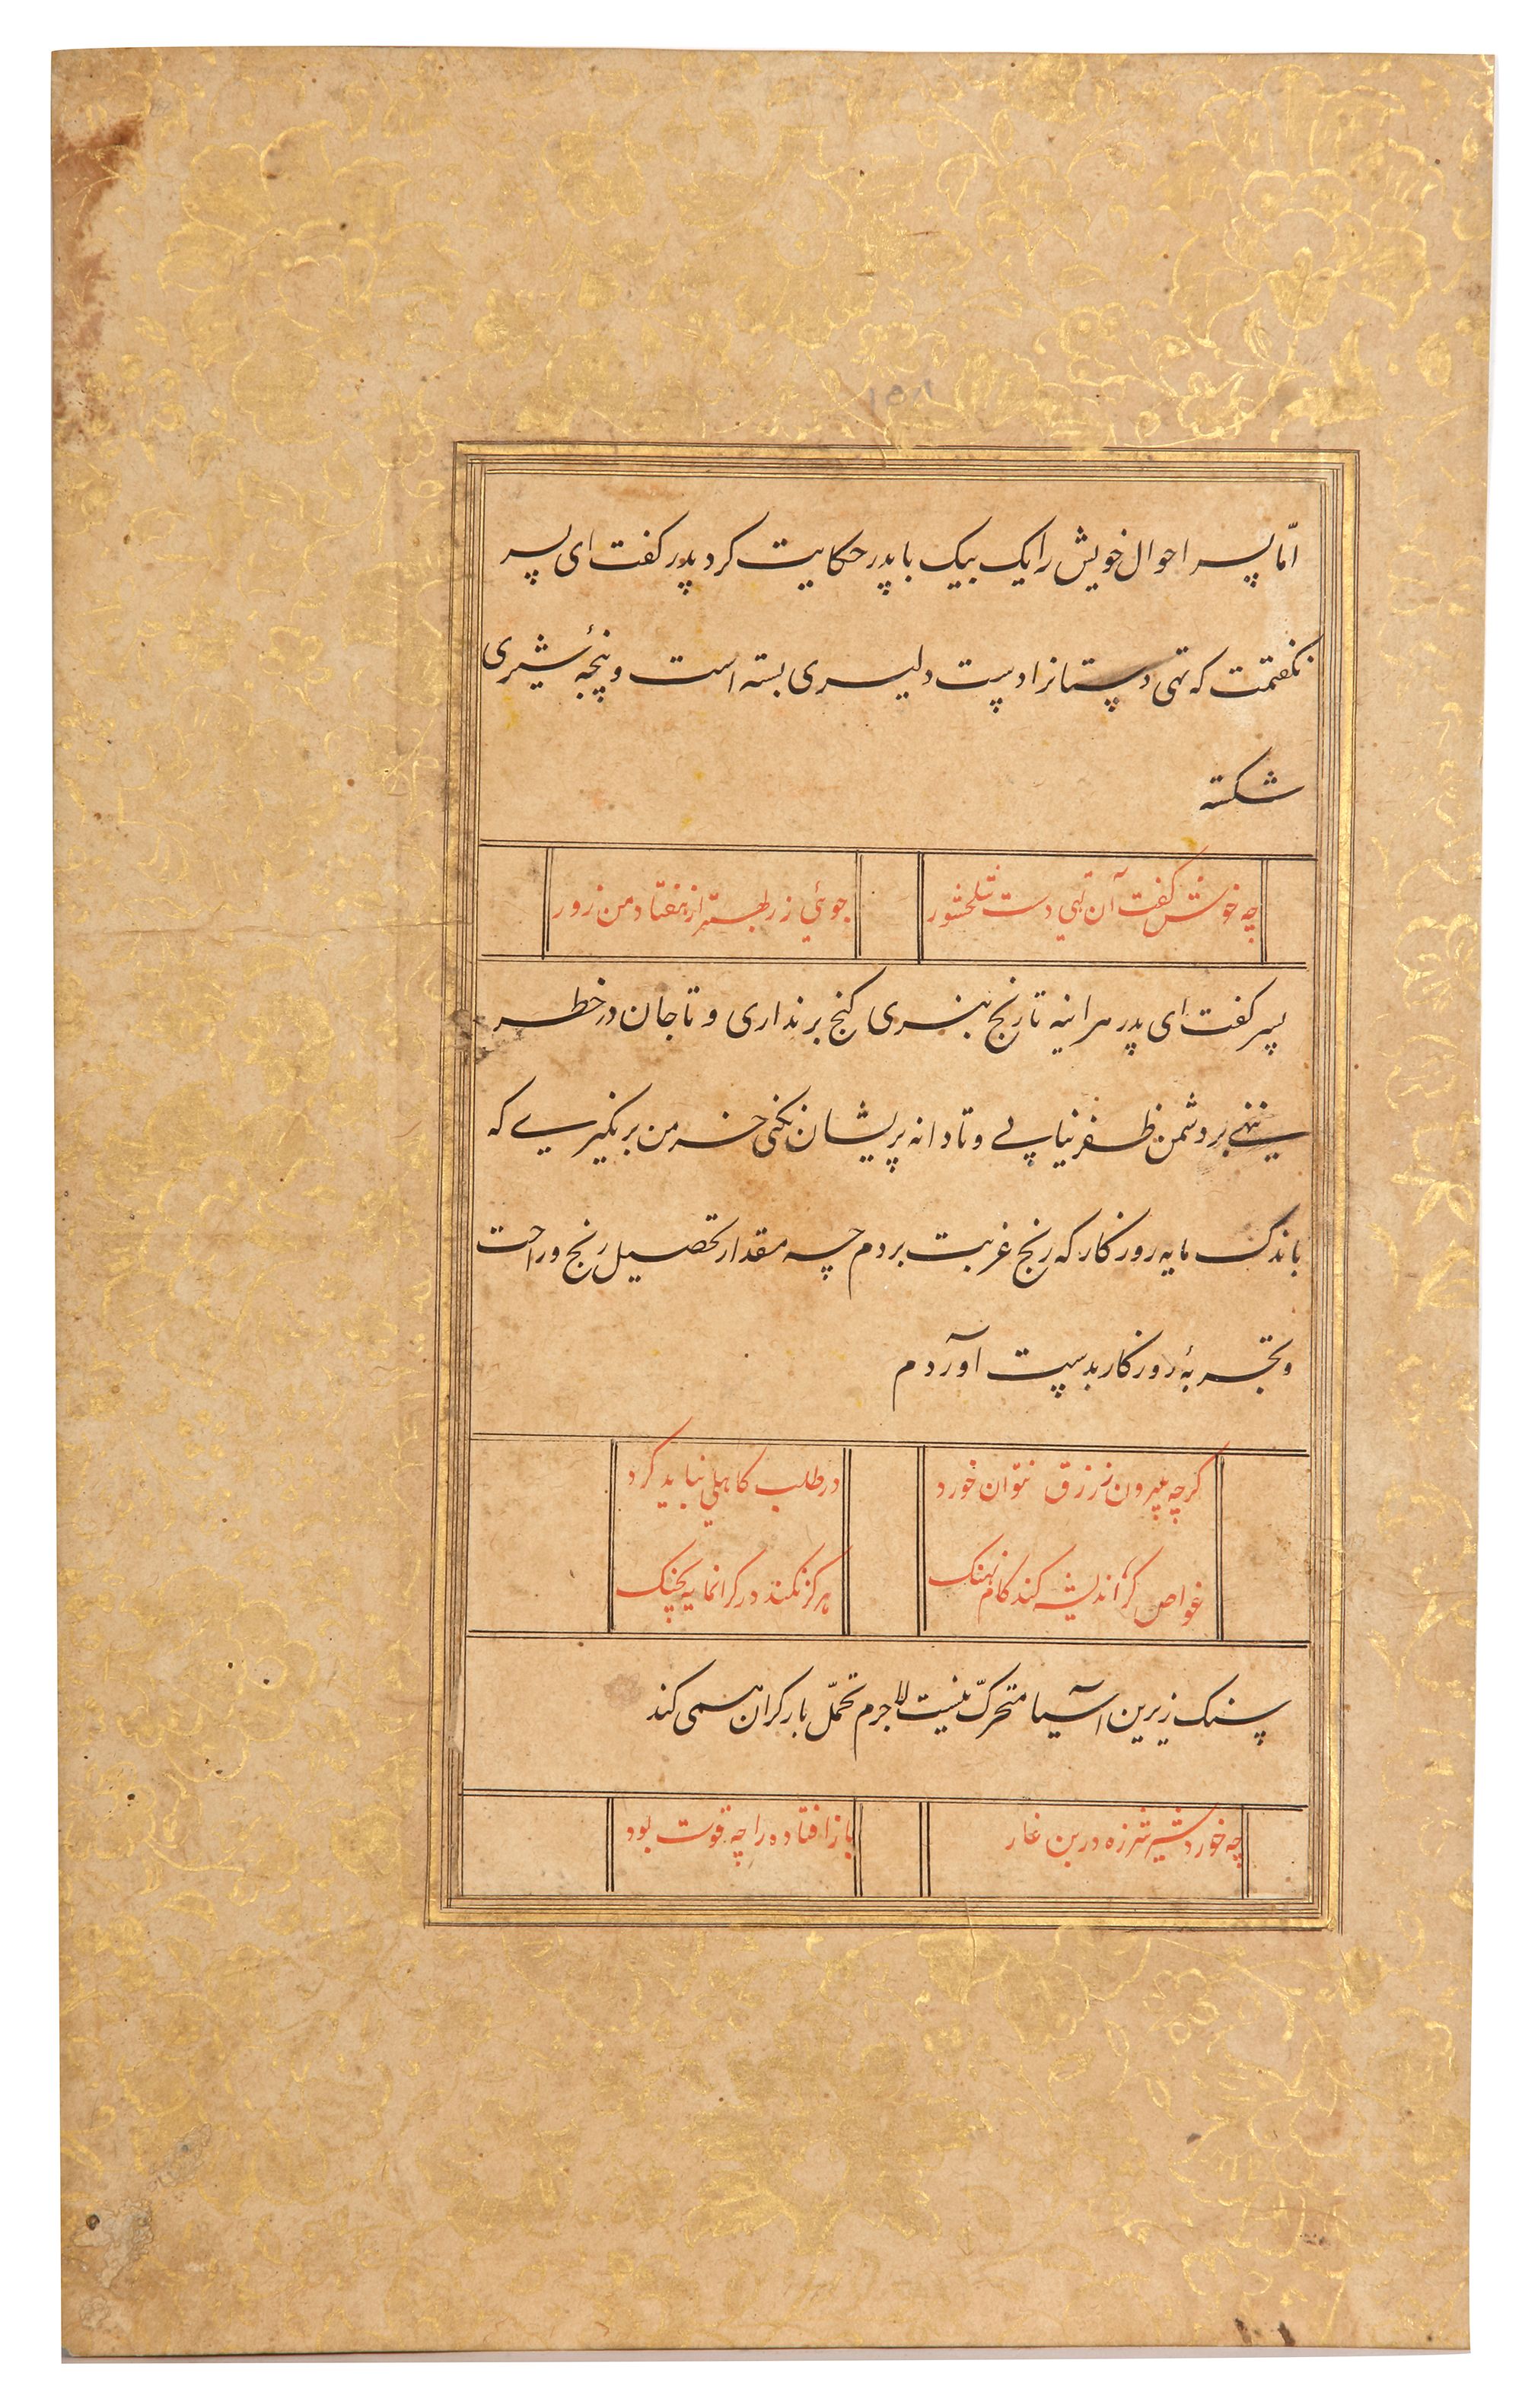 ۱۵۸
امّا پسر احوال خویش را یک بیک با پدر حکایت کرد پدر کفت ای پسر
نکفتمت که تهی دستانرا دست دلیری بسته است و پنجهٔ شیری
شکسته
چه خوش کفت آن تهی دست سلحشور جوئی زر بهتر از هفتاد من زور
پسر کفت ای پدر هراینه تا رنج نبری کنج برنداری و تا جان در خطر
ننهی بر دشمن ظفر نیابی و تا دانه پریشان نکنی خرمن برنگیری که
باندک مایه روزکار که رنج غربت بردم چه مقدار تحصیل رنج و راحت
و تجربهٔ روزکار بدست آوردم
کرچه بیرون ز رزق نتوان خورد در طلب کاهلی نباید کرد
غواص کر اندیشه کند کام نهنک هرکز نکند در کرانمایه بچنک
سنک زیرین آسیا متحرّک نیست لاجرم تحمّل بار کران همی کند
چه خورد شیر شرزه در بن غار باز افتاده را چه قوت بود